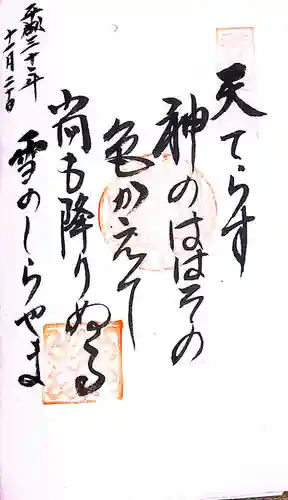 天てらす
神のははその
色かえて
尚も降りぬる
雪のしらやま
平成三十二年
十一月二十日